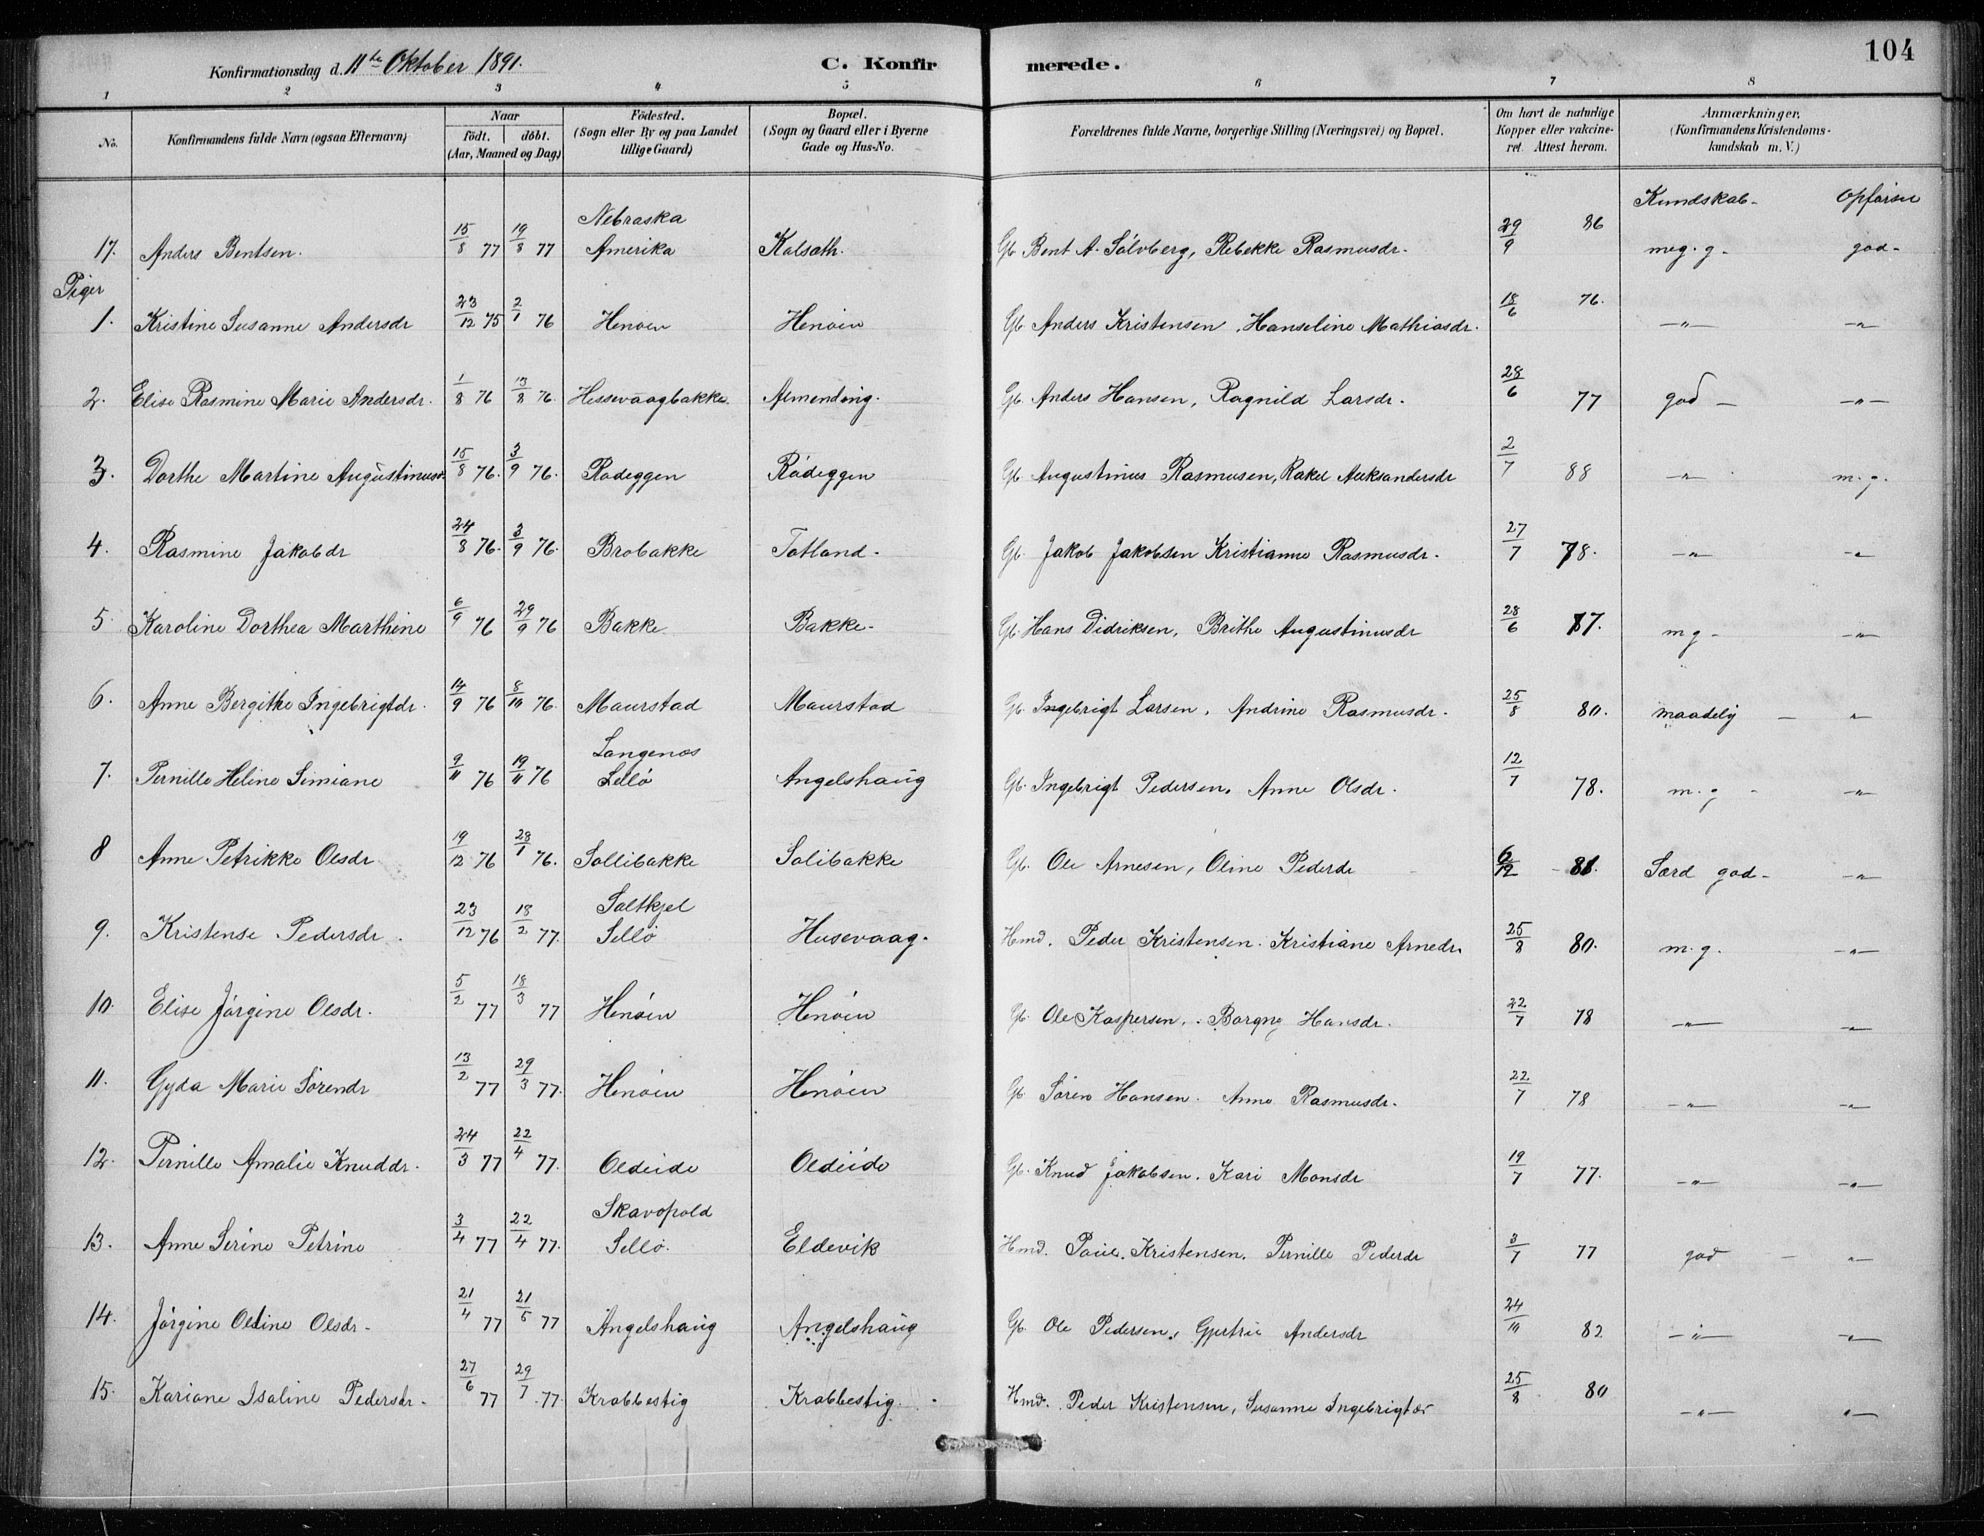 104
Konfirmationsdag d. 11te Oktober 1891.
C. Konfirmerede.
1 2 3 4 5 6 7 8
No. Konfirmandens fulde Navn (ogsaa Efternavn) Naar født. døbt. (Aar, Maaned og Dag) Fødested. (Sogn eller By og paa Landet tillige Gaard) Bopæl. (Sogn og Gaard eller i Byerne Gade og Hus-No. Forældrenes fulde Navne, borgerlige Stilling (Næringsvei) og Bopæl. Om havt de naturlige Kopper eller vakcineret. Attest herom. Anmærkninger. (Konfirmandens Kristendomskundskab m. V.)
Kundskab - Opførsel
17. Anders Bentsen. 15/8 77 19/8 77 Nebraska Amerika Kalsath. Gb. Bent A. Sølvberg, Rebekke Rasmusdr. 29/9 86 meg. g. god -
Piger
1. Kristine Susanne Andersdr 23/12 75 2/1 76 Henøen Henøen Gb. Anders Kristensen, Hanseline Mathiasdr. 18/6 76. -"- -"-
2. Elise Rasmine Marie Andersdr. 1/8 76 13/8 76. Hessevaagbakke. Almending. Gb. Anders Hansen, Ragnild Larsdr. 28/6 77 god - -"-
3. Dorthe Martine Augustinusdr 15/8 76. 3/9 76. Rødeggen Rødeggen Gb. Augustinus Rasmusen, Rakel Aleksandersdr 2/7 88 -"- m. g.
4. Rasmine Jakobdr 24/8 76. 3/9 76. Brobakke Totland. Gb. Jakob Jakobsen Kristianne Rasmusdr. 27/7 78. -"- -"-
5. Karoline Dorthea Marthine 6/9 76 29/9 76 Bakke Bakke. Gb. Hans Didriksen, Brithe Augustinusdr 28/6 87. m g - -"-
6. Anne Bergithe Ingebrigtdr. 14/9 76 8/10 76. Maurstad Maurstad Gb. Ingebrigt Larsen, Andrine Rasmusdr. 25/8 80. maadelig - -"-
7. Pernille Heline Simiane 9/11 76 19/11 76 Langenæs Sellø Angelshaug Gb. Ingebrigt Pedersen, Anne Olsdr. 12/7 78. m. g - -"-
8 Anne Petrikke Olsdr. 19/12 76 28/1 76. Sollibakke Solibakke Gb. Ole Arnesen, Oline Pederdr 6/12 81. Særd god - -"-
9. Kristense Pedersdr. 23/12 76 18/2 77. Saltkjel Sellø Husevaag. Hmd. Peder Kristensen. Kristiane Arnedr. 25/8 80. m. g. -"-
10. Elise Jørgine Olsdr. 5/2 77 18/3 77 Henøen Henøen Gb. Ole Kaspersen. Borgny Hansdr. 22/7 78 -"- -"-
11. Gyda Marie Sørendr 13/2 77 29/3 77. Henøen Henøen Gb. Søren Hansen. Anne Rasmusdr. 22/7 78 -"- -"-
12. Pernille Amalie Knuddr. 24/3 77 22/4 77. Oldeide Oldeide Gb. Knud Jakobsen. Kari Monsdr 19/7 77. -"- -"-
13. Anne Serine Petrine 3/4 77 22/4 77. Skavøpold Sellø. Eldevik Hmd. Poul. Kristensen. Pernille Pederdr 3/7 77 god - -"-
14. Jørgine Oline Olsdr. 21/4 77 21/5 77 Angelshaug Angelshaug Gb. Ole Pedersen, Gjertrie Andersdr 24/10 82 -"- -"-
15. Kariane Isaline Pedersdr. 27/6 77 29/7 77. Krabbestig Krabbestig. Hmd. Peder Kristensen, Susanne Ingebrigtdr 25/8 80 -"- -"-